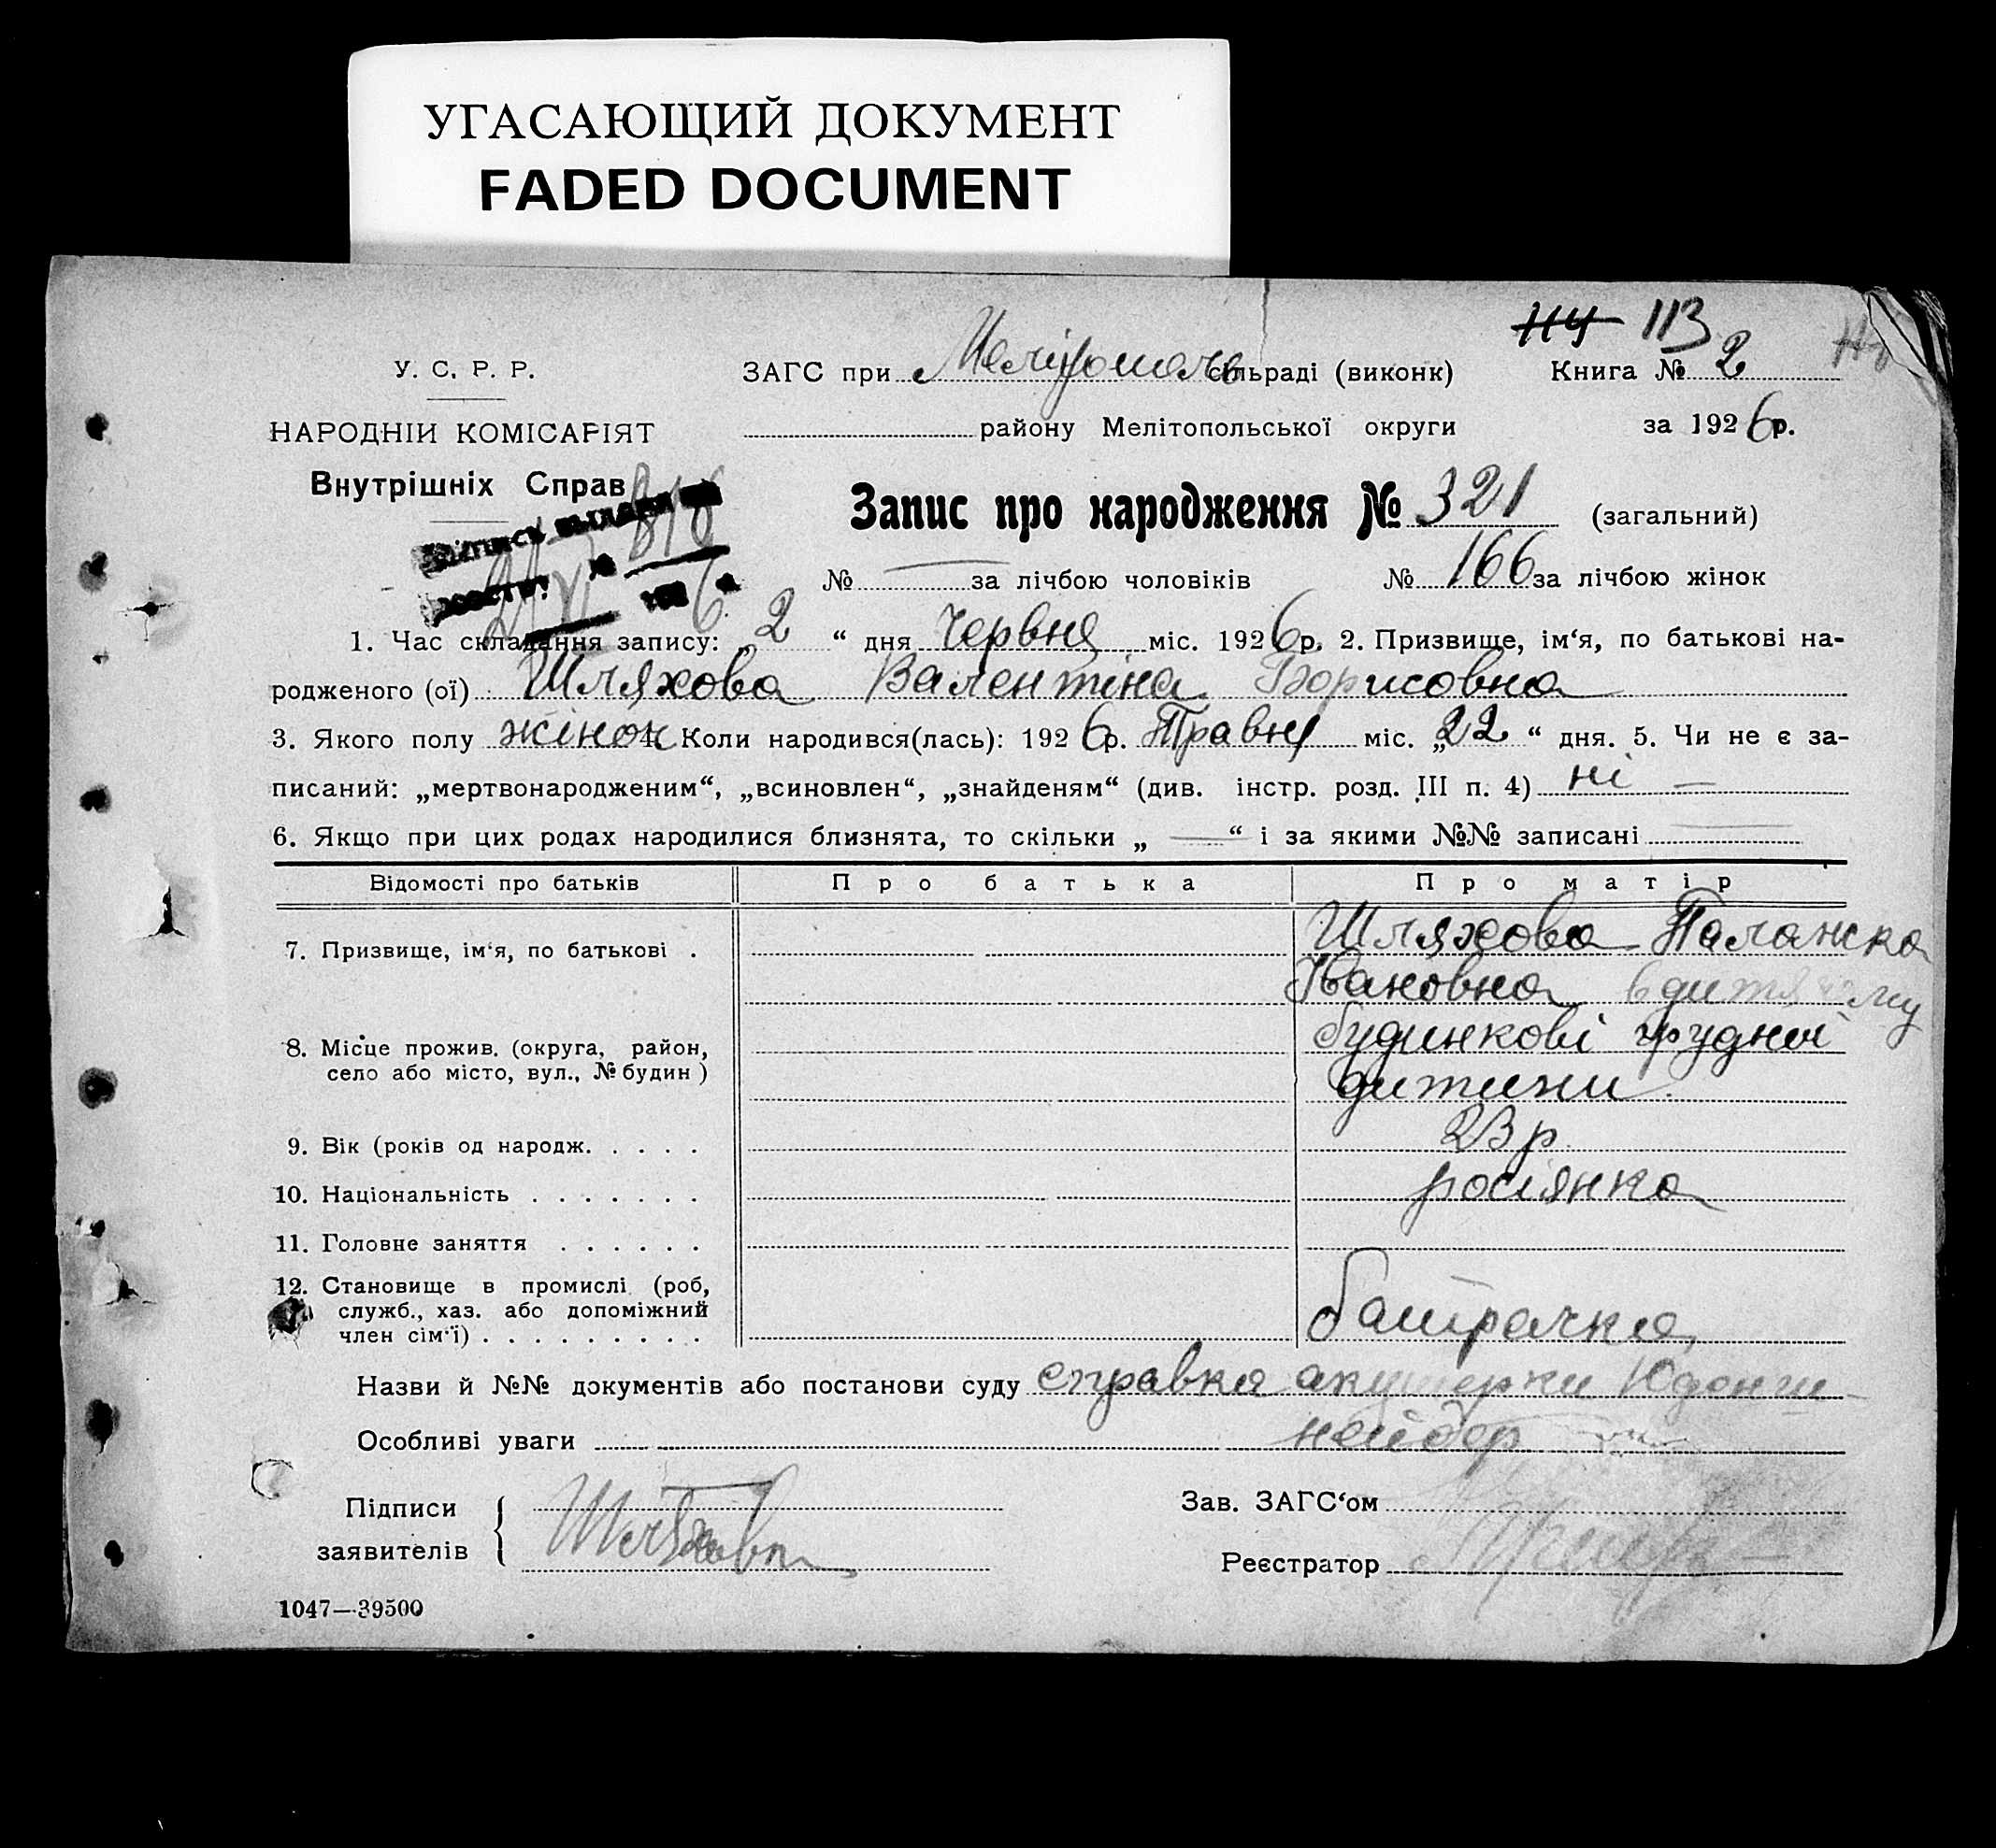 УГАСАЮЩИЙ ДОКУМЕНТ
FADED DOCUMENT
114 113
У. С. Р. Р.
ЗАГС при Мелітополь сільраді (виконк) Книга № 2
НАРОДНІЙ КОМІСАРІЯТ
району Мелітопольської округи за 1926 р.
Внутрішніх Справ
816
Запис про народження № 321 (загальний)
№ — за лічбою чоловіків № 166 за лічбою жінок
1. Час складання запису: „2“ дня Червня міс. 1926 р. 2. Призвище, ім‘я, по батькові на-
родженого (ої) Шляхова Валентіна Борисовна
3. Якого полу жінок 4. Коли народився(лась): 1926 р. Травня міс. „22“ дня. 5. Чи не є за-
писаний: „мертвонародженим“, „всиновлен“, „знайденям“ (див. інстр. розд. III п. 4) ні —
6. Якщо при цих родах народилися близнята, то скільки „ — “ і за якими №№ записані —
Відомості про батьків Про батька Про матір
7. Призвище, ім‘я, по батькові . Шляхова Палажка
Івановна в дитячому
8. Місце прожив. (округа, район, село або місто, вул., № будин) будинкові грудної
дитини.
9. Вік (років од народж. . . . . 23 р.
10. Національність . . . . . . . росіянка
11. Головне заняття . . . . . .
12. Становище в промислі (роб,
служб., хаз. або допоміжний
член сім‘ї) . . . . . . . . . батрачка
Назви й №№ документів або постанови суду справка акушерки
Особливі уваги
Підписи
заявителів Шляхова
Зав. ЗАГС‘ом
Реєстратор
1047—39500